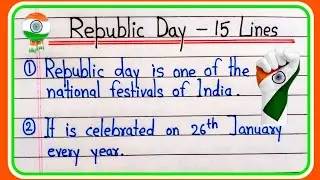 Republic Day - 15 Lines
① Republic day is one of the
national festivals of India.
② It is celebrated on 26th January
every year.